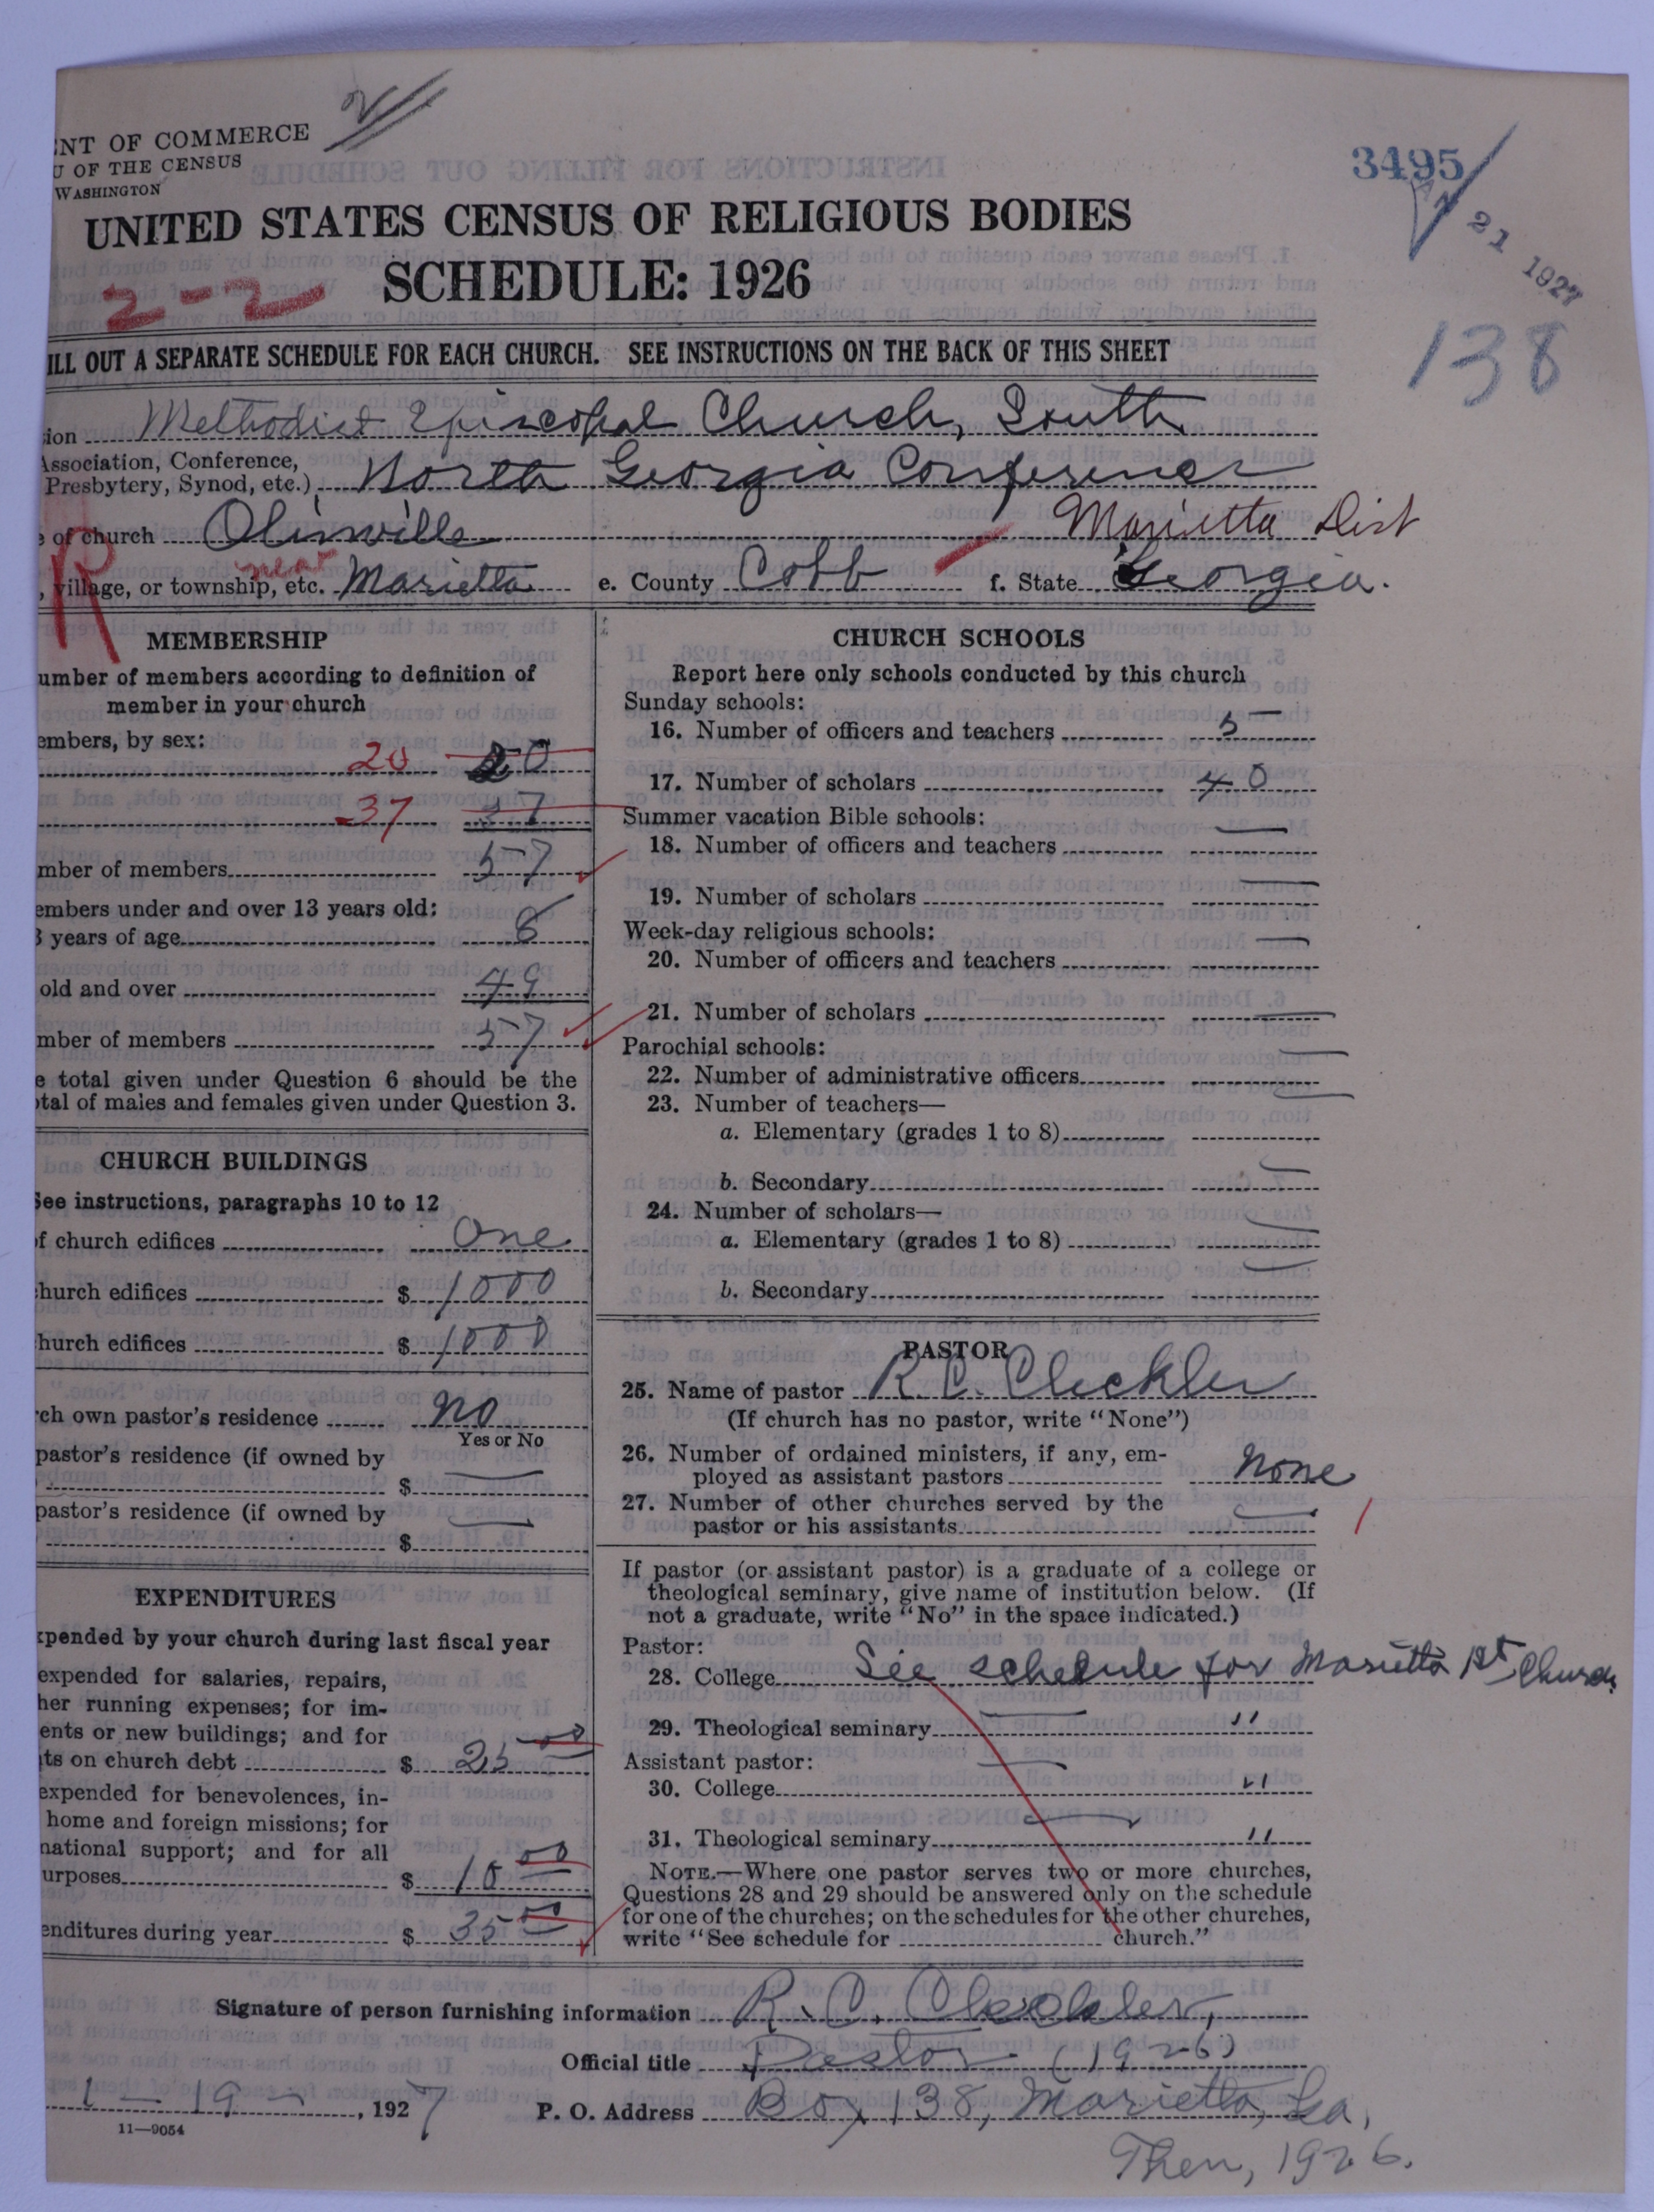 ENT OF COMMERCE
U OF THE CENSUS
WASHINGTON
3495
21 1927
138
UNITED STATES CENSUS OF RELIGIOUS BODIES
SCHEDULE: 1926
2-2
ILL OUT A SEPARATE SCHEDULE FOR EACH CHURCH. SEE INSTRUCTIONS ON THE BACK OF THIS SHEET
ion Methodist Episcopal Church, South
Association, Conference,
Presbytery, Synod, etc.) North Georgia Conference
e of church Olinville Marietta Dist
R
near
, village, or township, etc. Marietta e. County Cobb f. State Georgia.
MEMBERSHIP
umber of members according to definition of
member in your church
embers, by sex:
20 20
37 37
mber of members 57
embers under and over 13 years old:
3 years of age 8
old and over 49
mber of members 57
e total given under Question 6 should be the
otal of males and females given under Question 3.
CHURCH BUILDINGS
See instructions, paragraphs 10 to 12
of church edifices One
church edifices $ 1000
hurch edifices $ 1000
rch own pastor's residence No
Yes or No
pastor's residence (if owned by
$ —
pastor's residence (if owned by
$ —
EXPENDITURES
xpended by your church during last fiscal year
expended for salaries, repairs,
her running expenses; for im-
ents or new buildings; and for
ts on church debt $ 25 00
expended for benevolences, in-
home and foreign missions; for
national support; and for all
urposes $ 10 00
enditures during year $ 35 00
CHURCH SCHOOLS
Report here only schools conducted by this church
Sunday schools:
16. Number of officers and teachers 5
17. Number of scholars 40
Summer vacation Bible schools:
18. Number of officers and teachers —
19. Number of scholars —
Week-day religious schools:
20. Number of officers and teachers —
21. Number of scholars —
Parochial schools:
22. Number of administrative officers —
23. Number of teachers—
a. Elementary (grades 1 to 8) —
b. Secondary —
24. Number of scholars—
a. Elementary (grades 1 to 8) —
b. Secondary —
PASTOR
25. Name of pastor R. C. Cleckler
(If church has no pastor, write "None")
26. Number of ordained ministers, if any, em-
ployed as assistant pastors None
27. Number of other churches served by the
pastor or his assistants — 1
If pastor (or assistant pastor) is a graduate of a college or
theological seminary, give name of institution below. (If
not a graduate, write "No" in the space indicated.)
Pastor:
28. College See schedule for Marietta 1st Church
29. Theological seminary — "
Assistant pastor:
30. College — "
31. Theological seminary — "
NOTE.—Where one pastor serves two or more churches,
Questions 28 and 29 should be answered only on the schedule
for one of the churches; on the schedules for the other churches,
write "See schedule for church."
Signature of person furnishing information R. C. Cleckler,
Official title Pastor (1926)
1-19-, 1927 P. O. Address Box 138, Marietta, Ga,
11—9054
Then, 1926.